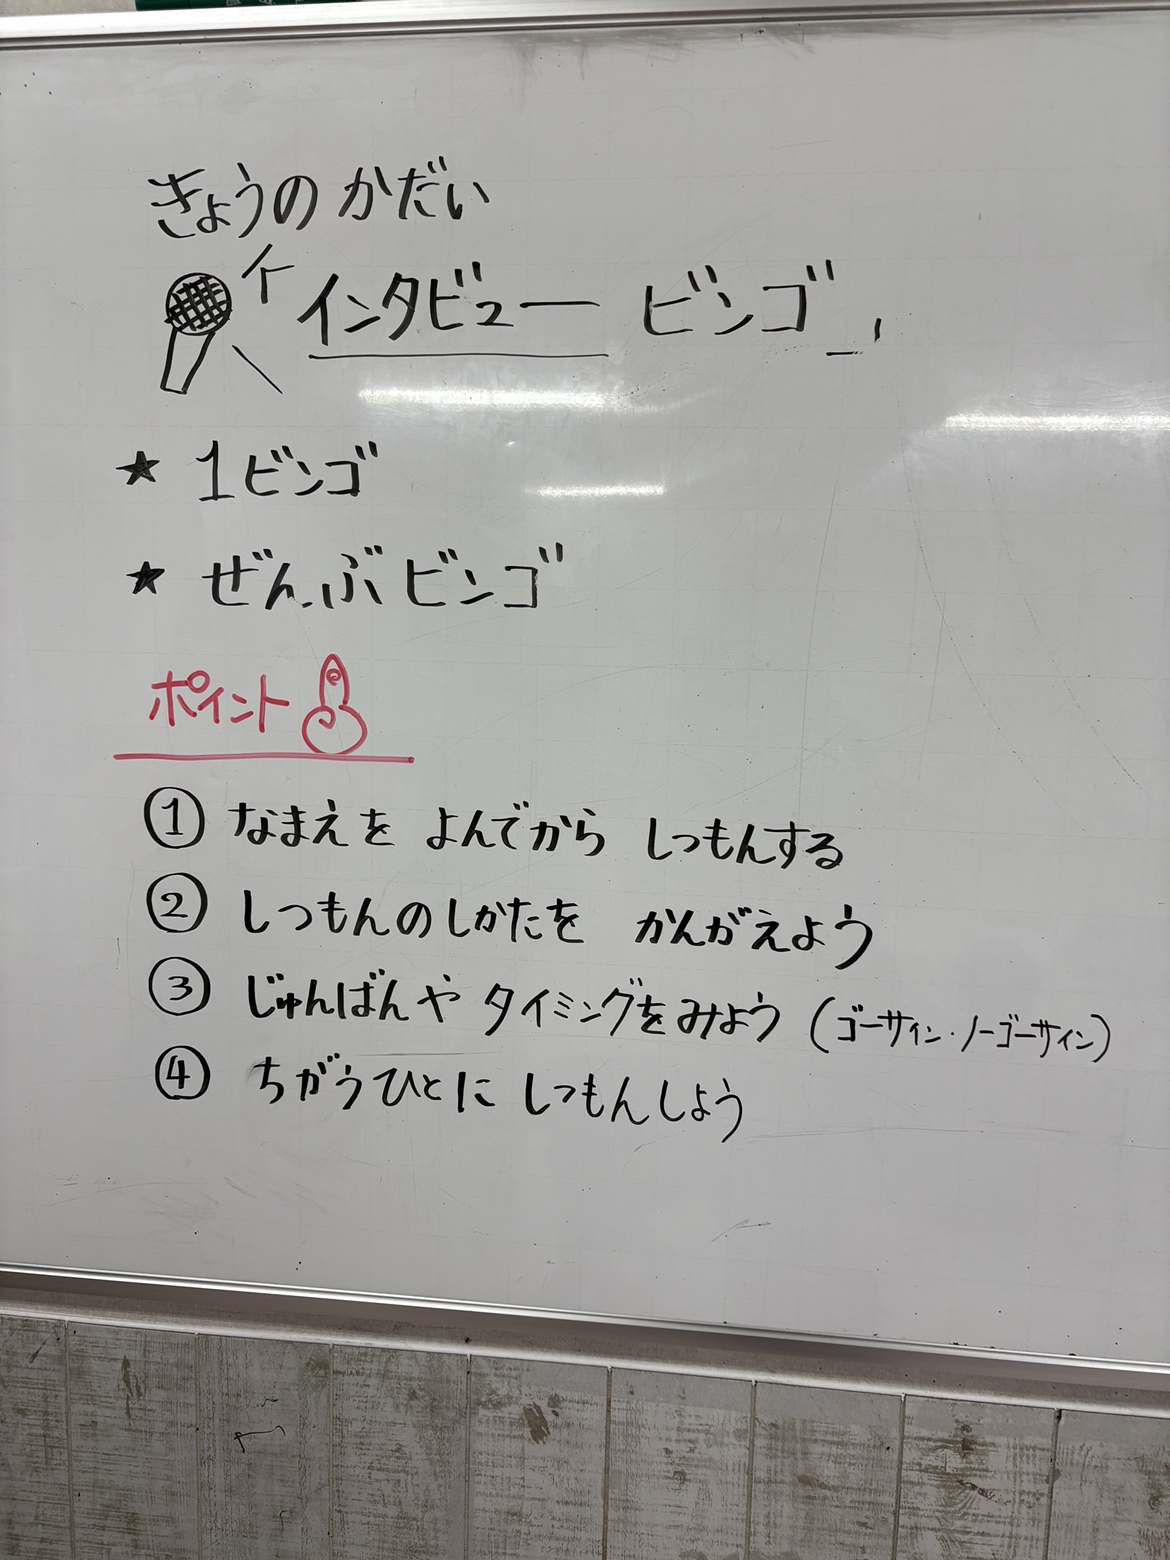 きょうの かだい
インタビュー ビンゴ
★ 1ビンゴ
★ ぜんぶビンゴ
ポイント
① なまえを よんでから しつもんする
② しつもんのしかたを かんがえよう
③ じゅんばんや タイミングをみよう (ゴーサイン・ノーゴーサイン)
④ ちがうひとに しつもんしよう